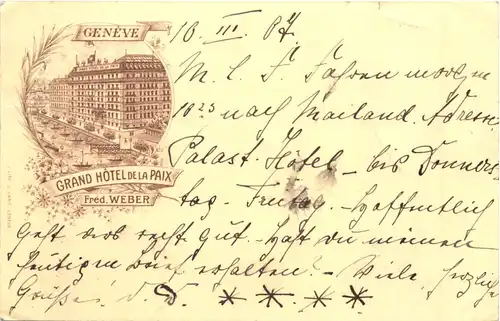 GENÈVE
GRAND HÔTEL DE LA PAIX
Fréd. WEBER
10 III. 07
M. L. F. Fahren morgen
10 23 nach Mailand. Adresse
Palast-Hôtel - bis Donners
tag - Freitag - Hoffentlich
Geht es recht gut. - Hast du meinen
heutigen Brief erhalten? - Viele herzliche
Grüsse, d. * * * *